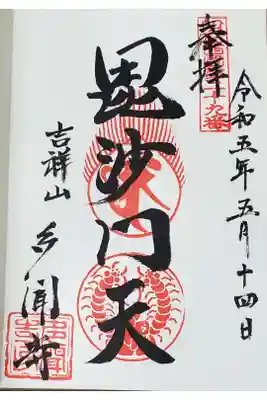 令和五年五月十四日
奉拝
毘沙门天
吉祥山
多聞寺